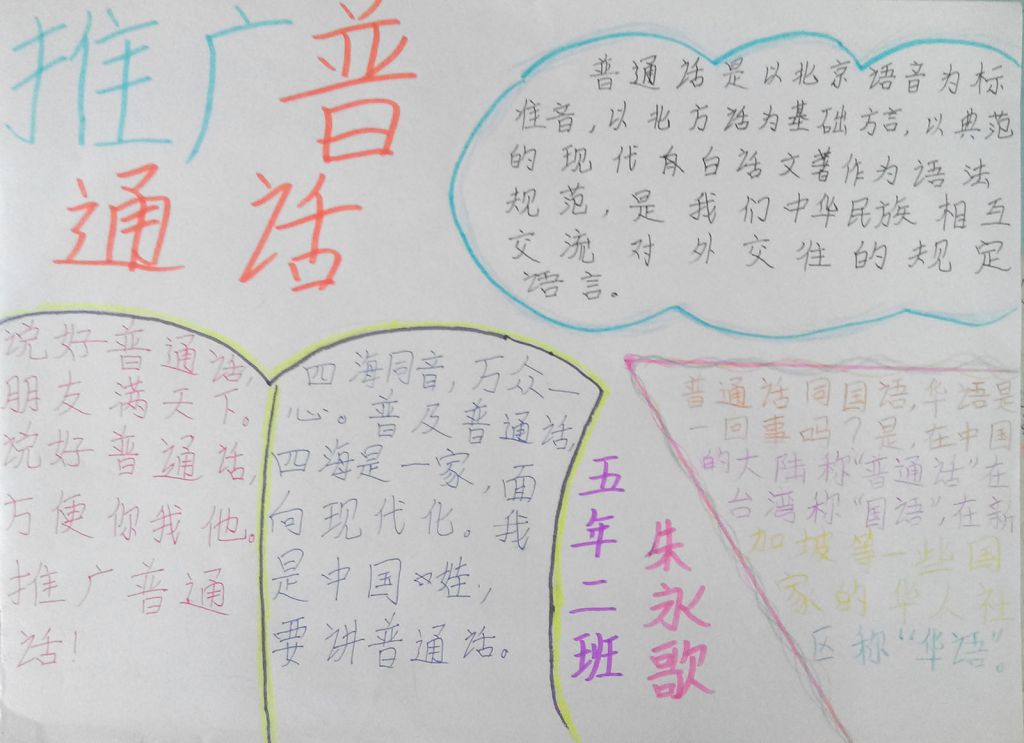 推广普
通话
普通话是以北京语音为标
准音,以北方话为基础方言,以典范
的现代白话文著作为语法
规范,是我们中华民族相互
交流对外交往的规定
语言。
说好普通话,
朋友满天下。
说好普通话,
方便你我他。
推广普通
话!
四海同音,万众一
心。普及普通话,
四海是一家,面
向现代化。我
是中国娃,
要讲普通话。
五年二班
朱永歌
普通话同国语,华语是
一回事吗?是,在中国
的大陆称“普通话”在
台湾称“国语”,在新
加坡等一些国
家的华人社
区称“华语”。